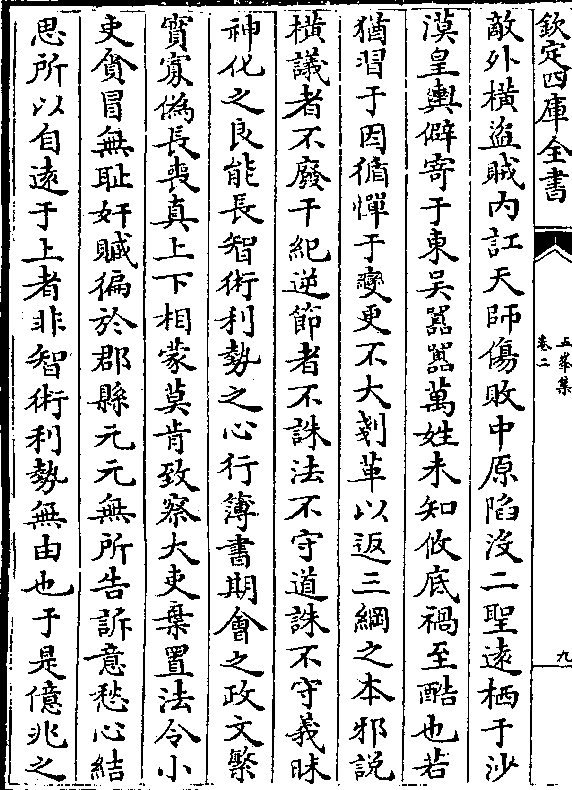 欽定四庫全書
五峯集
卷二
九
敵外橫盜賊内訌天師傷敗中原陷没二聖遠栖于沙
漠皇輿僻寄于東吳囂囂萬姓未知攸底禍至酷也若
猶習于因循憚于變更不大剗革以返三綱之本邪説
橫議者不廢干紀逆節者不誅法不守道誅不守義昧
神化之良能長智術利勢之心行簿書期㑹之政文繁
實寡偽長喪真上下相蒙莫肯致察大吏棄置法令小
吏貪冒無恥奸贓徧於郡縣元元無所告訴意愁心結
思所以自逺于上者非智術利勢無由也于是億兆之